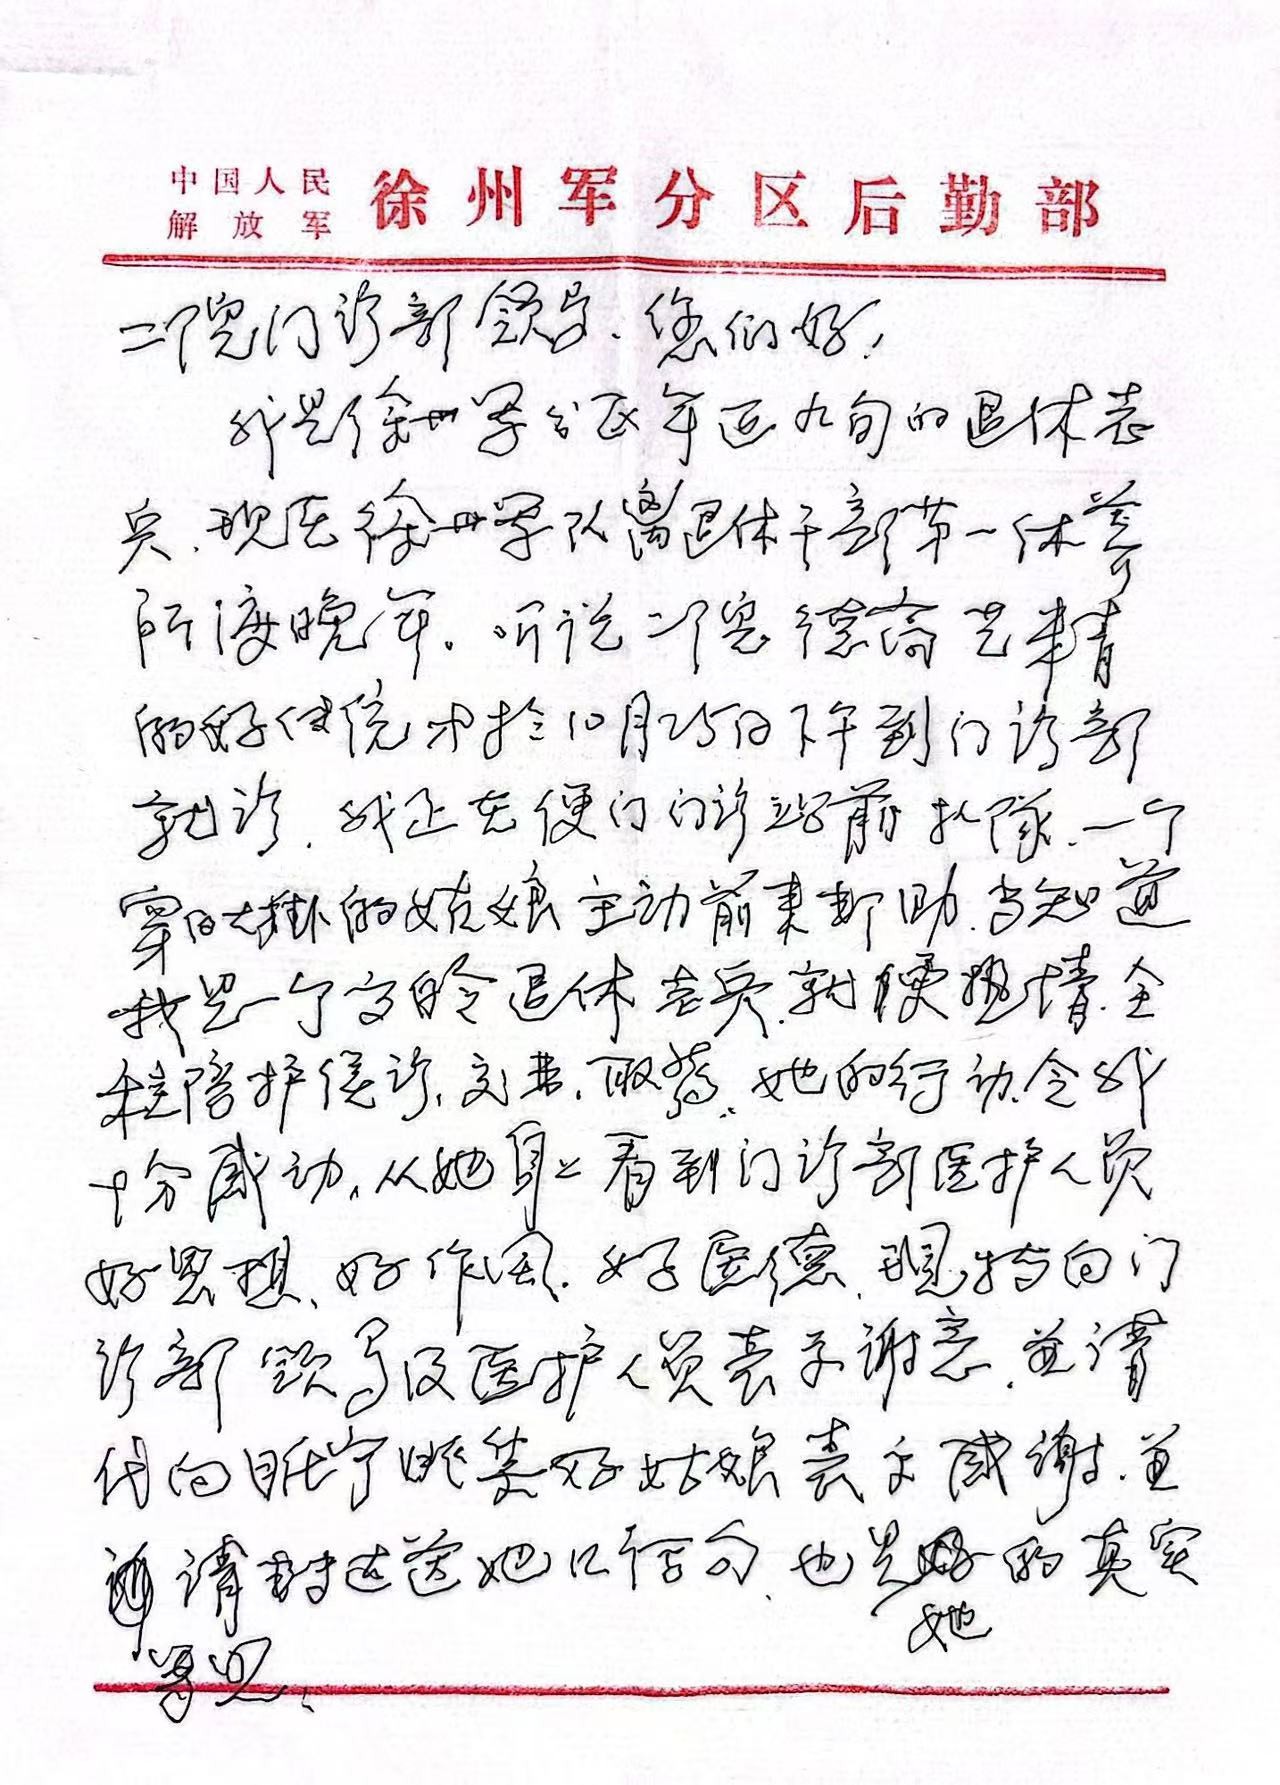 中国人民
解放军
徐州军分区后勤部
二院门诊部领导、您们好!
我是徐州军分区年近九旬的退休老
兵、现在徐州军队离退休干部第一休养
所渡晚年。听说二院德高艺精
的好传统才於10月25日下午到门诊部
就诊、我正在便门门诊部前扒隊、一个
穿白大掛的姑娘主动前来帮助、当知道
我是一个高龄退休老兵、就便热情、全
程陪护侯诊、交费、取药、她的行动、令我
十分感动、从她身上看到门诊部医护人员
好思想、好作风、好医德、现特向门
诊部领导及医护人员表示谢意、並请
代向 好姑娘表示感谢、並
请转送她几句、也是她的真实
写照、